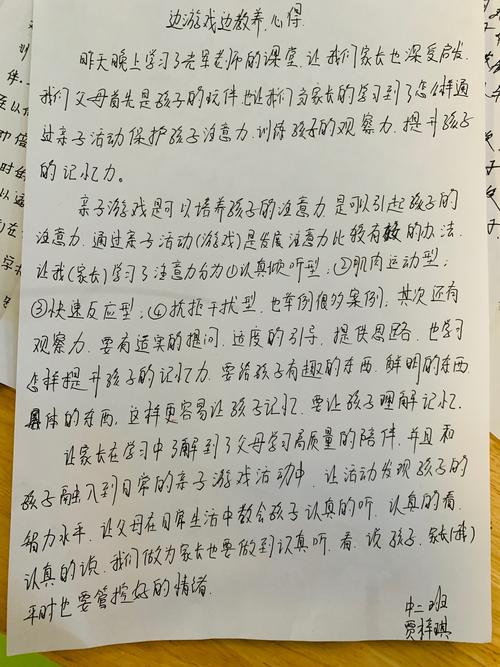 边游戏边教养心得.
昨天晚上学习了老军老师的课堂.让我们家长也深受启发.
我们父母首先是孩子的玩伴.也让我们当家长的学习到了怎么样通
过亲子活动保护孩子注意力.训练孩子的观察力.提升孩子
的记忆力。
亲子游戏是可以培养孩子的注意力.是可以引起孩子的
注意力.通过亲子活动(游戏)是发展注意力比较有效的办法.
让我(家长)学习了注意力分为①认真倾听型;②肌肉运动型;
③快速反应型;④抗拒干扰型.也举例很多案例.其次还有
观察力.要有适实的提问.适度的引导.提供思路.也学习
怎样提升孩子的记忆力.要给孩子有趣的东西.鲜明的东西.
具体的东西.这样更容易让孩子记忆.要让孩子理解记忆.
让家长在学习中了解到了父母学习高质量的陪伴.并且和
孩子融入到日常的亲子游戏活动中.让活动发现孩子的
智力水平.让父母在日常生活中教会孩子认真的听.认真的看.
认真的说.我们做为家长也要做到认真听.看.说.孩子.家长(我)
平时也要管控好的情绪.
中二班
贾梓琪